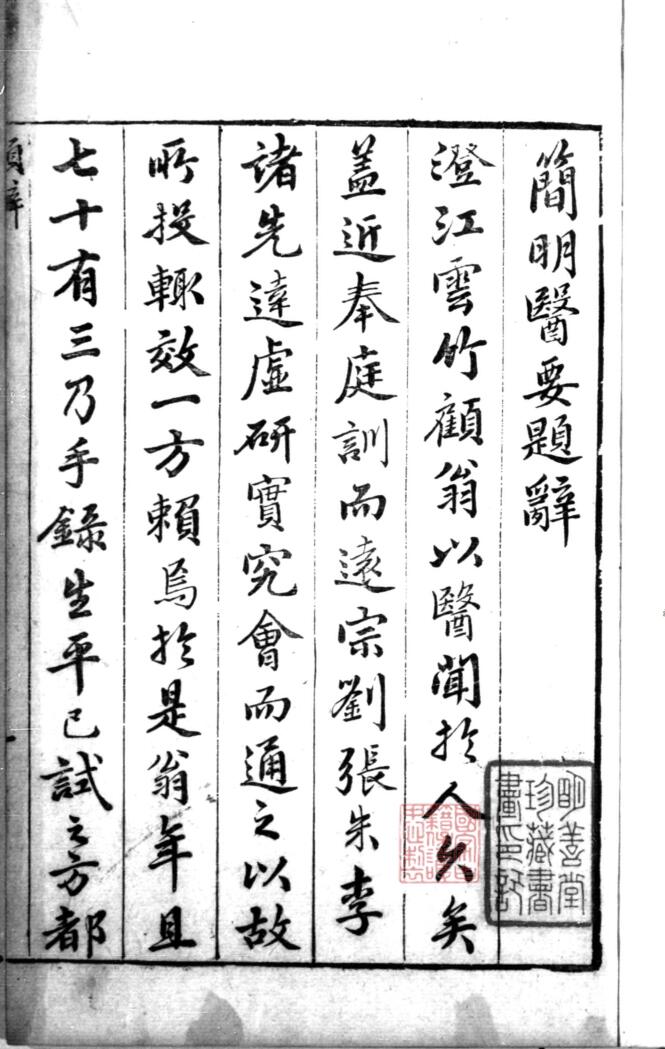 簡明醫要題辭
澄江雲竹顧翁以醫聞於人久矣
蓋近奉庭訓而遠宗劉張朱李
諸先達虛研實究會而通之以故
所投輒效一方賴焉於是翁年且
七十有三乃手錄生平已試之方都
題辭
明善堂
珍藏書
畫印記